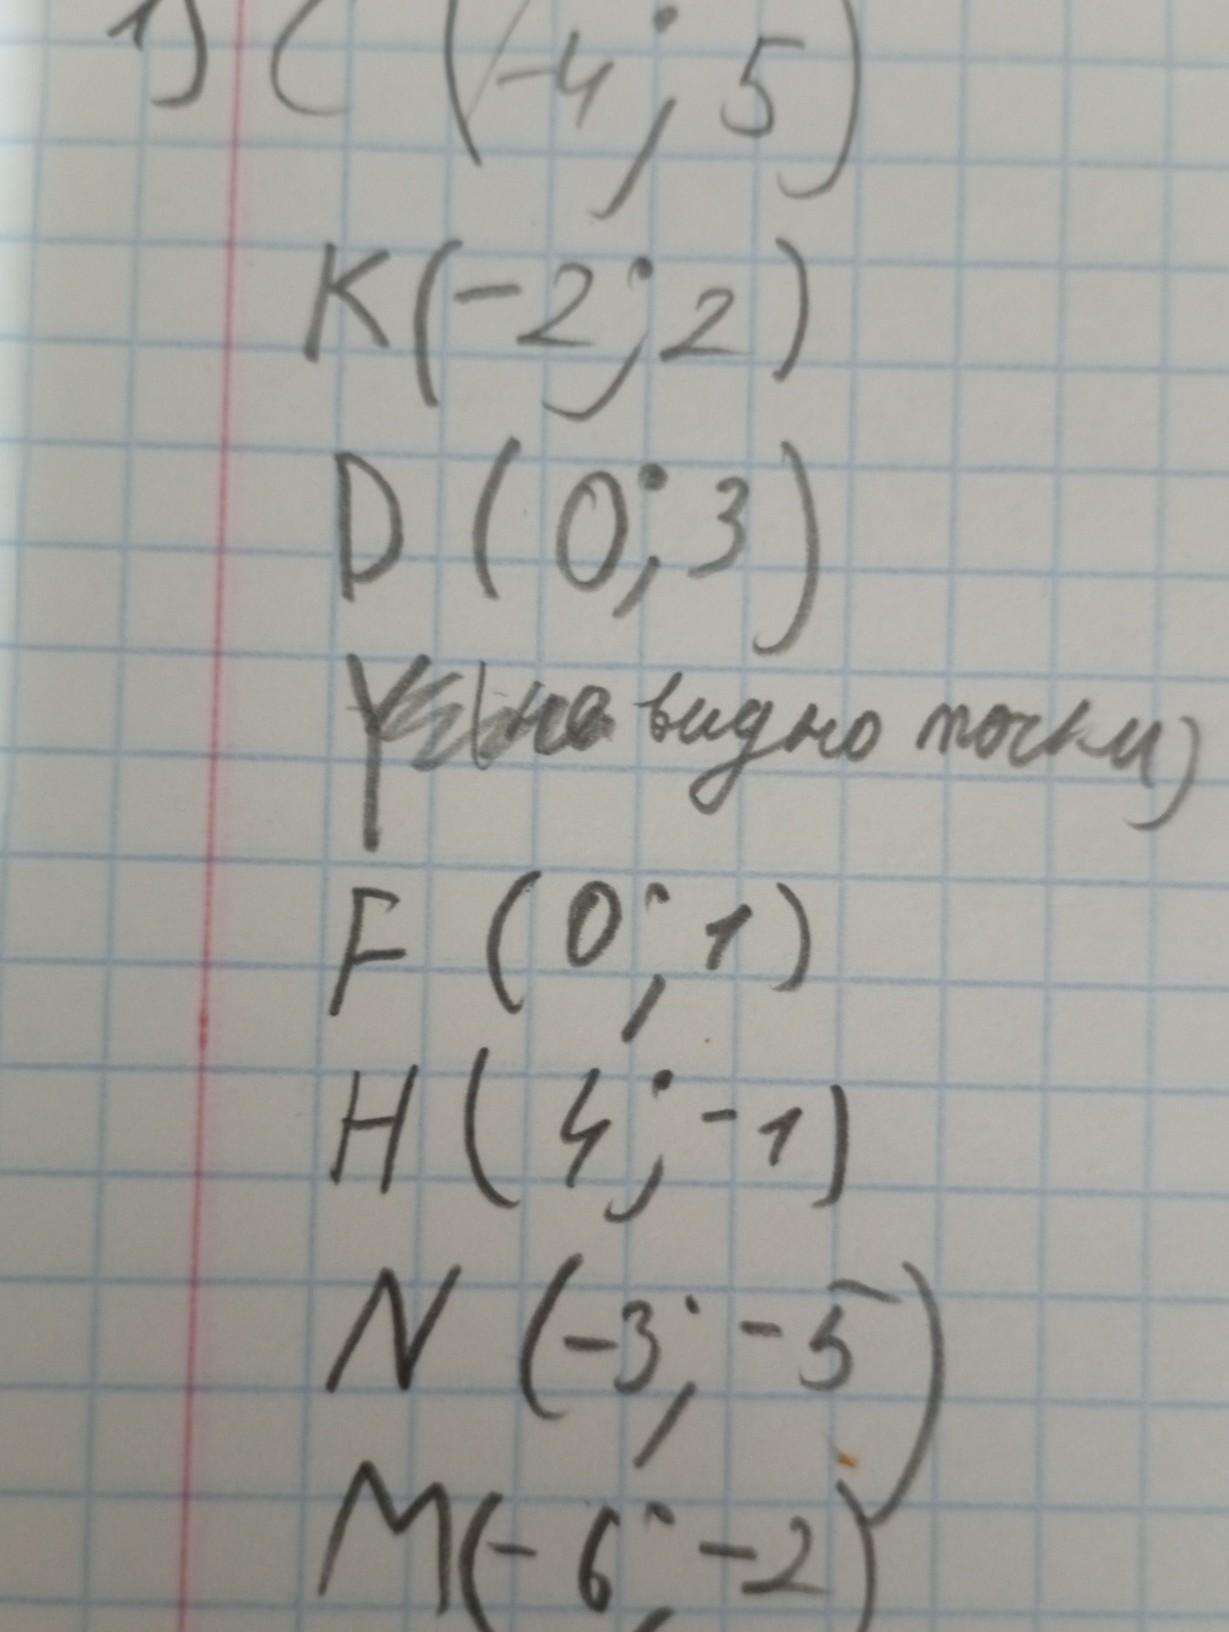 1) C (-4; 5)
K(-2; 2)
D (0; 3)
Y (не видно точки)
F (0; 1)
H (4; -1)
N (-3; -5)
M(-6; -2)